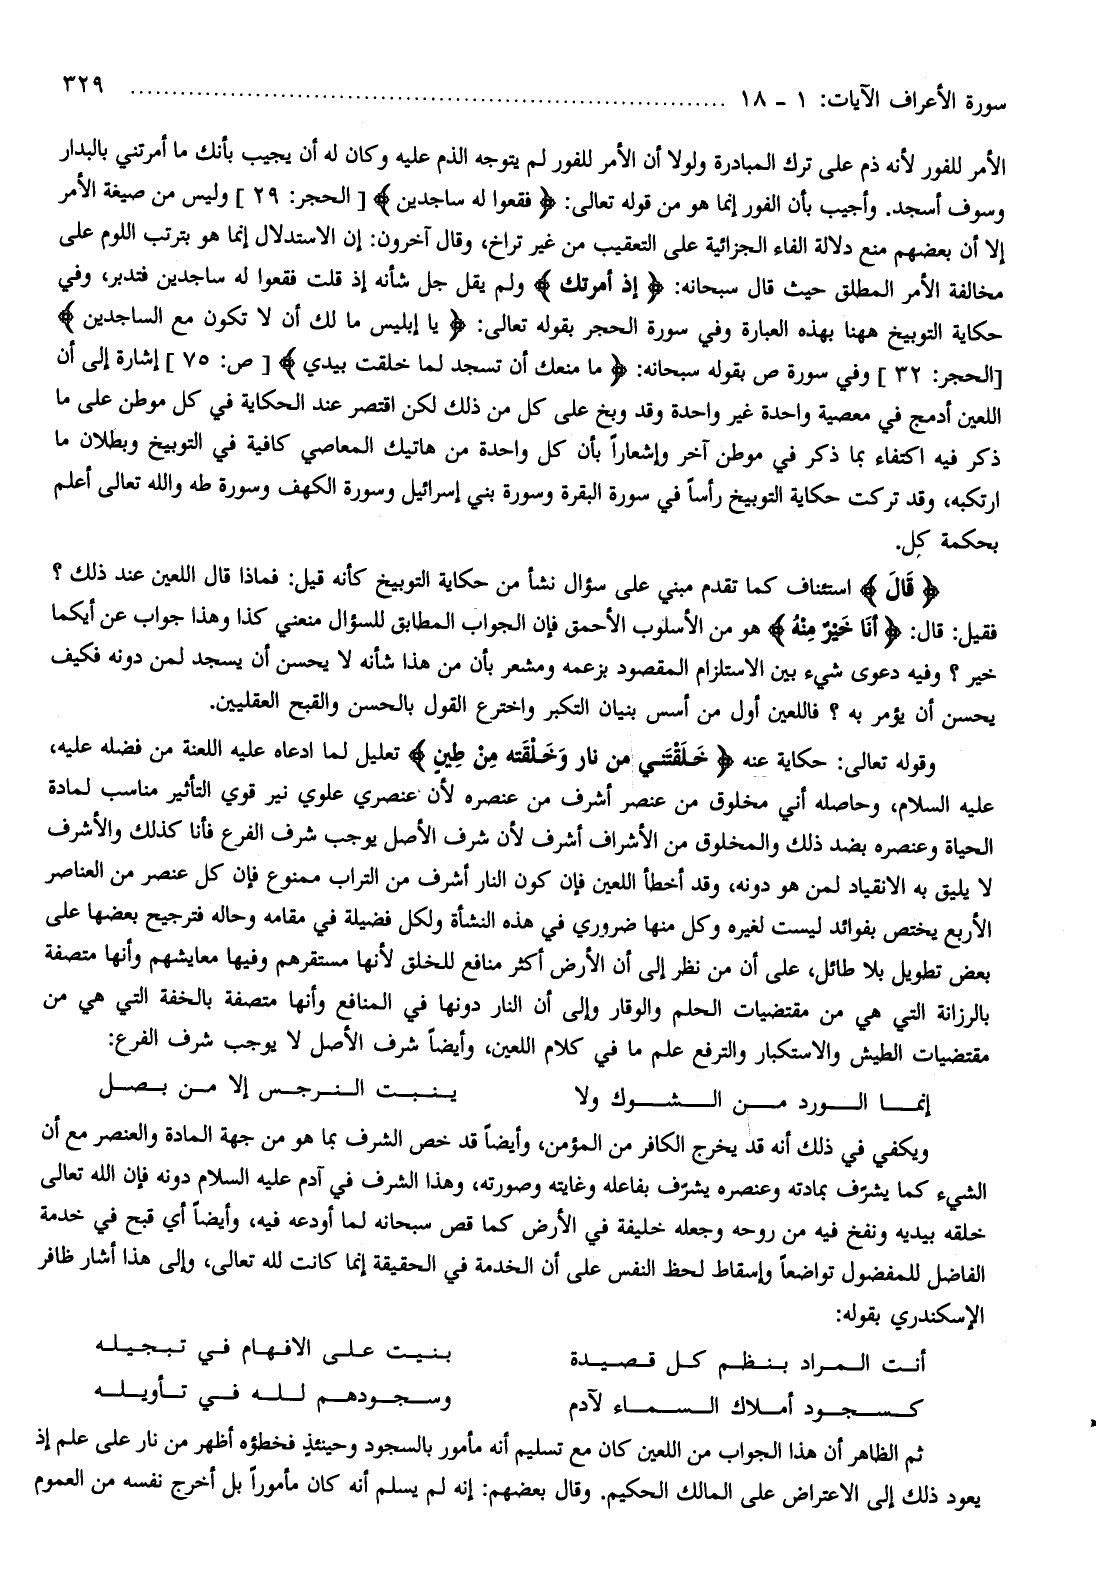 سورة الأعراف الآيات: ١ - ١٨ ........................................................................ ٣٢٩
الأمر للفور لأنه ذم على ترك المبادرة ولولا أن الأمر للفور لم يتوجه الذم عليه وكان له أن يجيب بأنك ما أمرتني بالبدار
وسوف أسجد. وأجيب بأن الفور إنما هو من قوله تعالى: ﴿ فقعوا له ساجدين ﴾ [ الحجر: ٢٩ ] وليس من صيغة الأمر
إلا أن بعضهم منع دلالة الفاء الجزائية على التعقيب من غير تراخ، وقال آخرون: إن الاستدلال إنما هو بترتب اللوم على
مخالفة الأمر المطلق حيث قال سبحانه: ﴿ إذ أمرتك ﴾ ولم يقل جل شأنه إذ قلت فقعوا له ساجدين فتدبر، وفي
حكاية التوبيخ ههنا بهذه العبارة وفي سورة الحجر بقوله تعالى: ﴿ يا إبليس ما لك أن لا تكون مع الساجدين ﴾
[الحجر: ٣٢ ] وفي سورة ص بقوله سبحانه: ﴿ ما منعك أن تسجد لما خلقت بيدي ﴾ [ ص: ٧٥ ] إشارة إلى أن
اللعين أدمج في معصية واحدة غير واحدة وقد وبخ على كل من ذلك لكن اقتصر عند الحكاية في كل موطن على ما
ذكر فيه اكتفاء بما ذكر في موطن آخر وإشعاراً بأن كل واحدة من هاتيك المعاصي كافية في التوبيخ وبطلان ما
ارتكبه، وقد تركت حكاية التوبيخ رأساً في سورة البقرة وسورة بني إسرائيل وسورة الكهف وسورة طه والله تعالى أعلم
بحكمة كل.
﴿ قَالَ ﴾ استئناف كما تقدم مبني على سؤال نشأ من حكاية التوبيخ كأنه قيل: فماذا قال اللعين عند ذلك ؟
فقيل: قال: ﴿ أَنَا خَيْرٌ مِنْهُ ﴾ هو من الأسلوب الأحمق فإن الجواب المطابق للسؤال منعني كذا وهذا جواب عن أيكما
خير ؟ وفيه دعوى شيء بين الاستلزام المقصود بزعمه ومشعر بأن من هذا شأنه لا يحسن أن يسجد لمن دونه فكيف
يحسن أن يؤمر به ؟ فاللعين أول من أسس بنيان التكبر واخترع القول بالحسن والقبح العقليين.
وقوله تعالى: حكاية عنه ﴿ خَلَقْتَني من نار وَخَلَقْته مِنْ طِينٍ ﴾ تعليل لما ادعاه عليه اللعنة من فضله عليه،
عليه السلام، وحاصله أني مخلوق من عنصر أشرف من عنصره لأن عنصري علوي نير قوي التأثير مناسب لمادة
الحياة وعنصره بضد ذلك والمخلوق من الأشراف أشرف لأن شرف الأصل يوجب شرف الفرع فأنا كذلك والأشرف
لا يليق به الانقياد لمن هو دونه، وقد أخطأ اللعين فإن كون النار أشرف من التراب ممنوع فإن كل عنصر من العناصر
الأربع يختص بفوائد ليست لغيره وكل منها ضروري في هذه النشأة ولكل فضيلة في مقامه وحاله فترجيح بعضها على
بعض تطويل بلا طائل، على أن من نظر إلى أن الأرض أكثر منافع للخلق لأنها مستقرهم وفيها معايشهم وأنها متصفة
بالرزانة التي هي من مقتضيات الحلم والوقار وإلى أن النار دونها في المنافع وأنها متصفة بالخفة التي هي من
مقتضيات الطيش والاستكبار والترفع علم ما في كلام اللعين، وأيضاً شرف الأصل لا يوجب شرف الفرع:
إنما الورد من الشوك ولا     ينبت النرجس إلا من بصل
ويكفي في ذلك أنه قد يخرج الكافر من المؤمن، وأيضاً قد خص الشرف بما هو من جهة المادة والعنصر مع أن
الشيء كما يشرّف بمادته وعنصره يشرّف بفاعله وغايته وصورته، وهذا الشرف في آدم عليه السلام دونه فإن الله تعالى
خلقه بيديه ونفخ فيه من روحه وجعله خليفة في الأرض كما قص سبحانه لما أودعه فيه، وأيضاً أي قبح في خدمة
الفاضل للمفضول تواضعاً وإسقاط لحظ النفس على أن الخدمة في الحقيقة إنما كانت لله تعالى، وإلى هذا أشار ظافر
الإسكندري بقوله:
أنت المراد بنظم كل قصيدة     بنيت على الافهام في تبجيله
كسجود أملاك السماء لآدم     وسجودهم لله في تأويله
ثم الظاهر أن هذا الجواب من اللعين كان مع تسليم أنه مأمور بالسجود وحينئذٍ فخطؤه أظهر من نار على علم إذ
يعود ذلك إلى الاعتراض على المالك الحكيم. وقال بعضهم: إنه لم يسلم أنه كان مأموراً بل أخرج نفسه من العموم